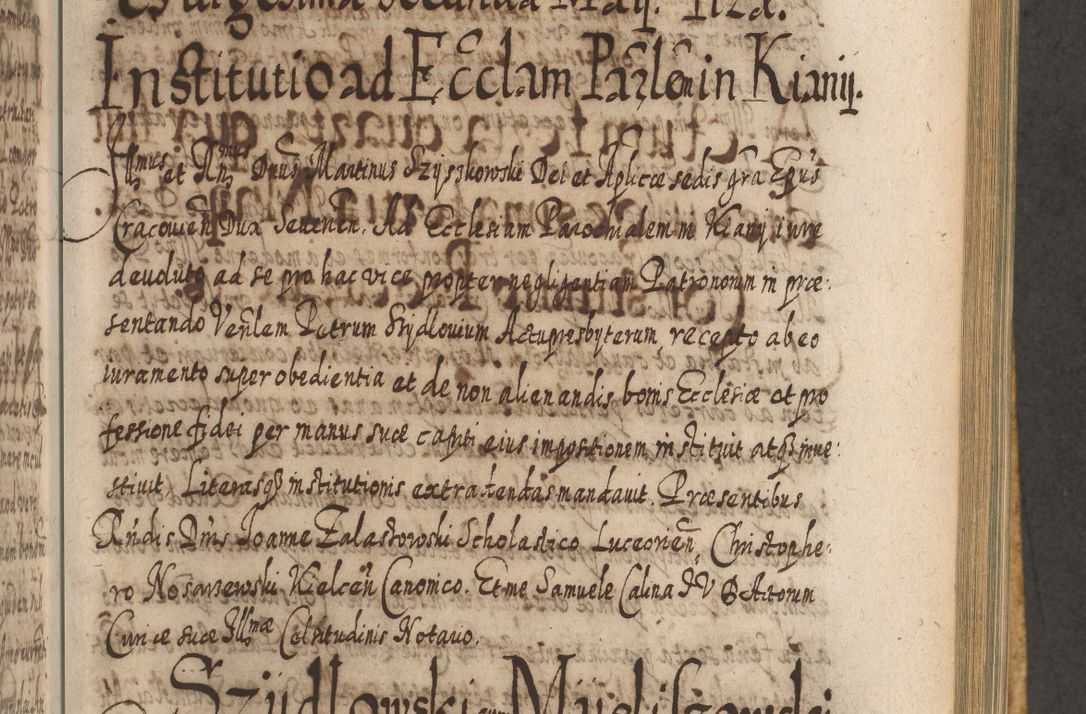 Institutio ad Eccłam Parłem in Kianij.
Illmus et Rnmus Dnus Martinus Szyszkowski Dei et Aplicæ sedis gra Epus
Cracouien Dux Seuerien. Ad Ecclesiam Parochialem in Kiany iure
deuoluto ad se pro hac vice propter negligentiam Patronorum in præ:
sentando Venlem Petrum Szydlouium Actupresbyterum recepto ab eo
iuramento super obedientia et de non alienandis bonis Ecclesiæ et pro
fessione fidei per manus suæ capiti eius impositionem instituit atq; inue:
stiuit, Literasq; institutionis extradendas mandauit. Præsentibus
Rndis Dnis Ioanne Zalastowski Scholastico Luceorien, Christophe:
ro Nosarzewski Kielcen Canonico. Et me Samuele Calina IV D Actorum
Curiæ suæ Illmæ Celsitudinis Notario.
Szydlowski cum